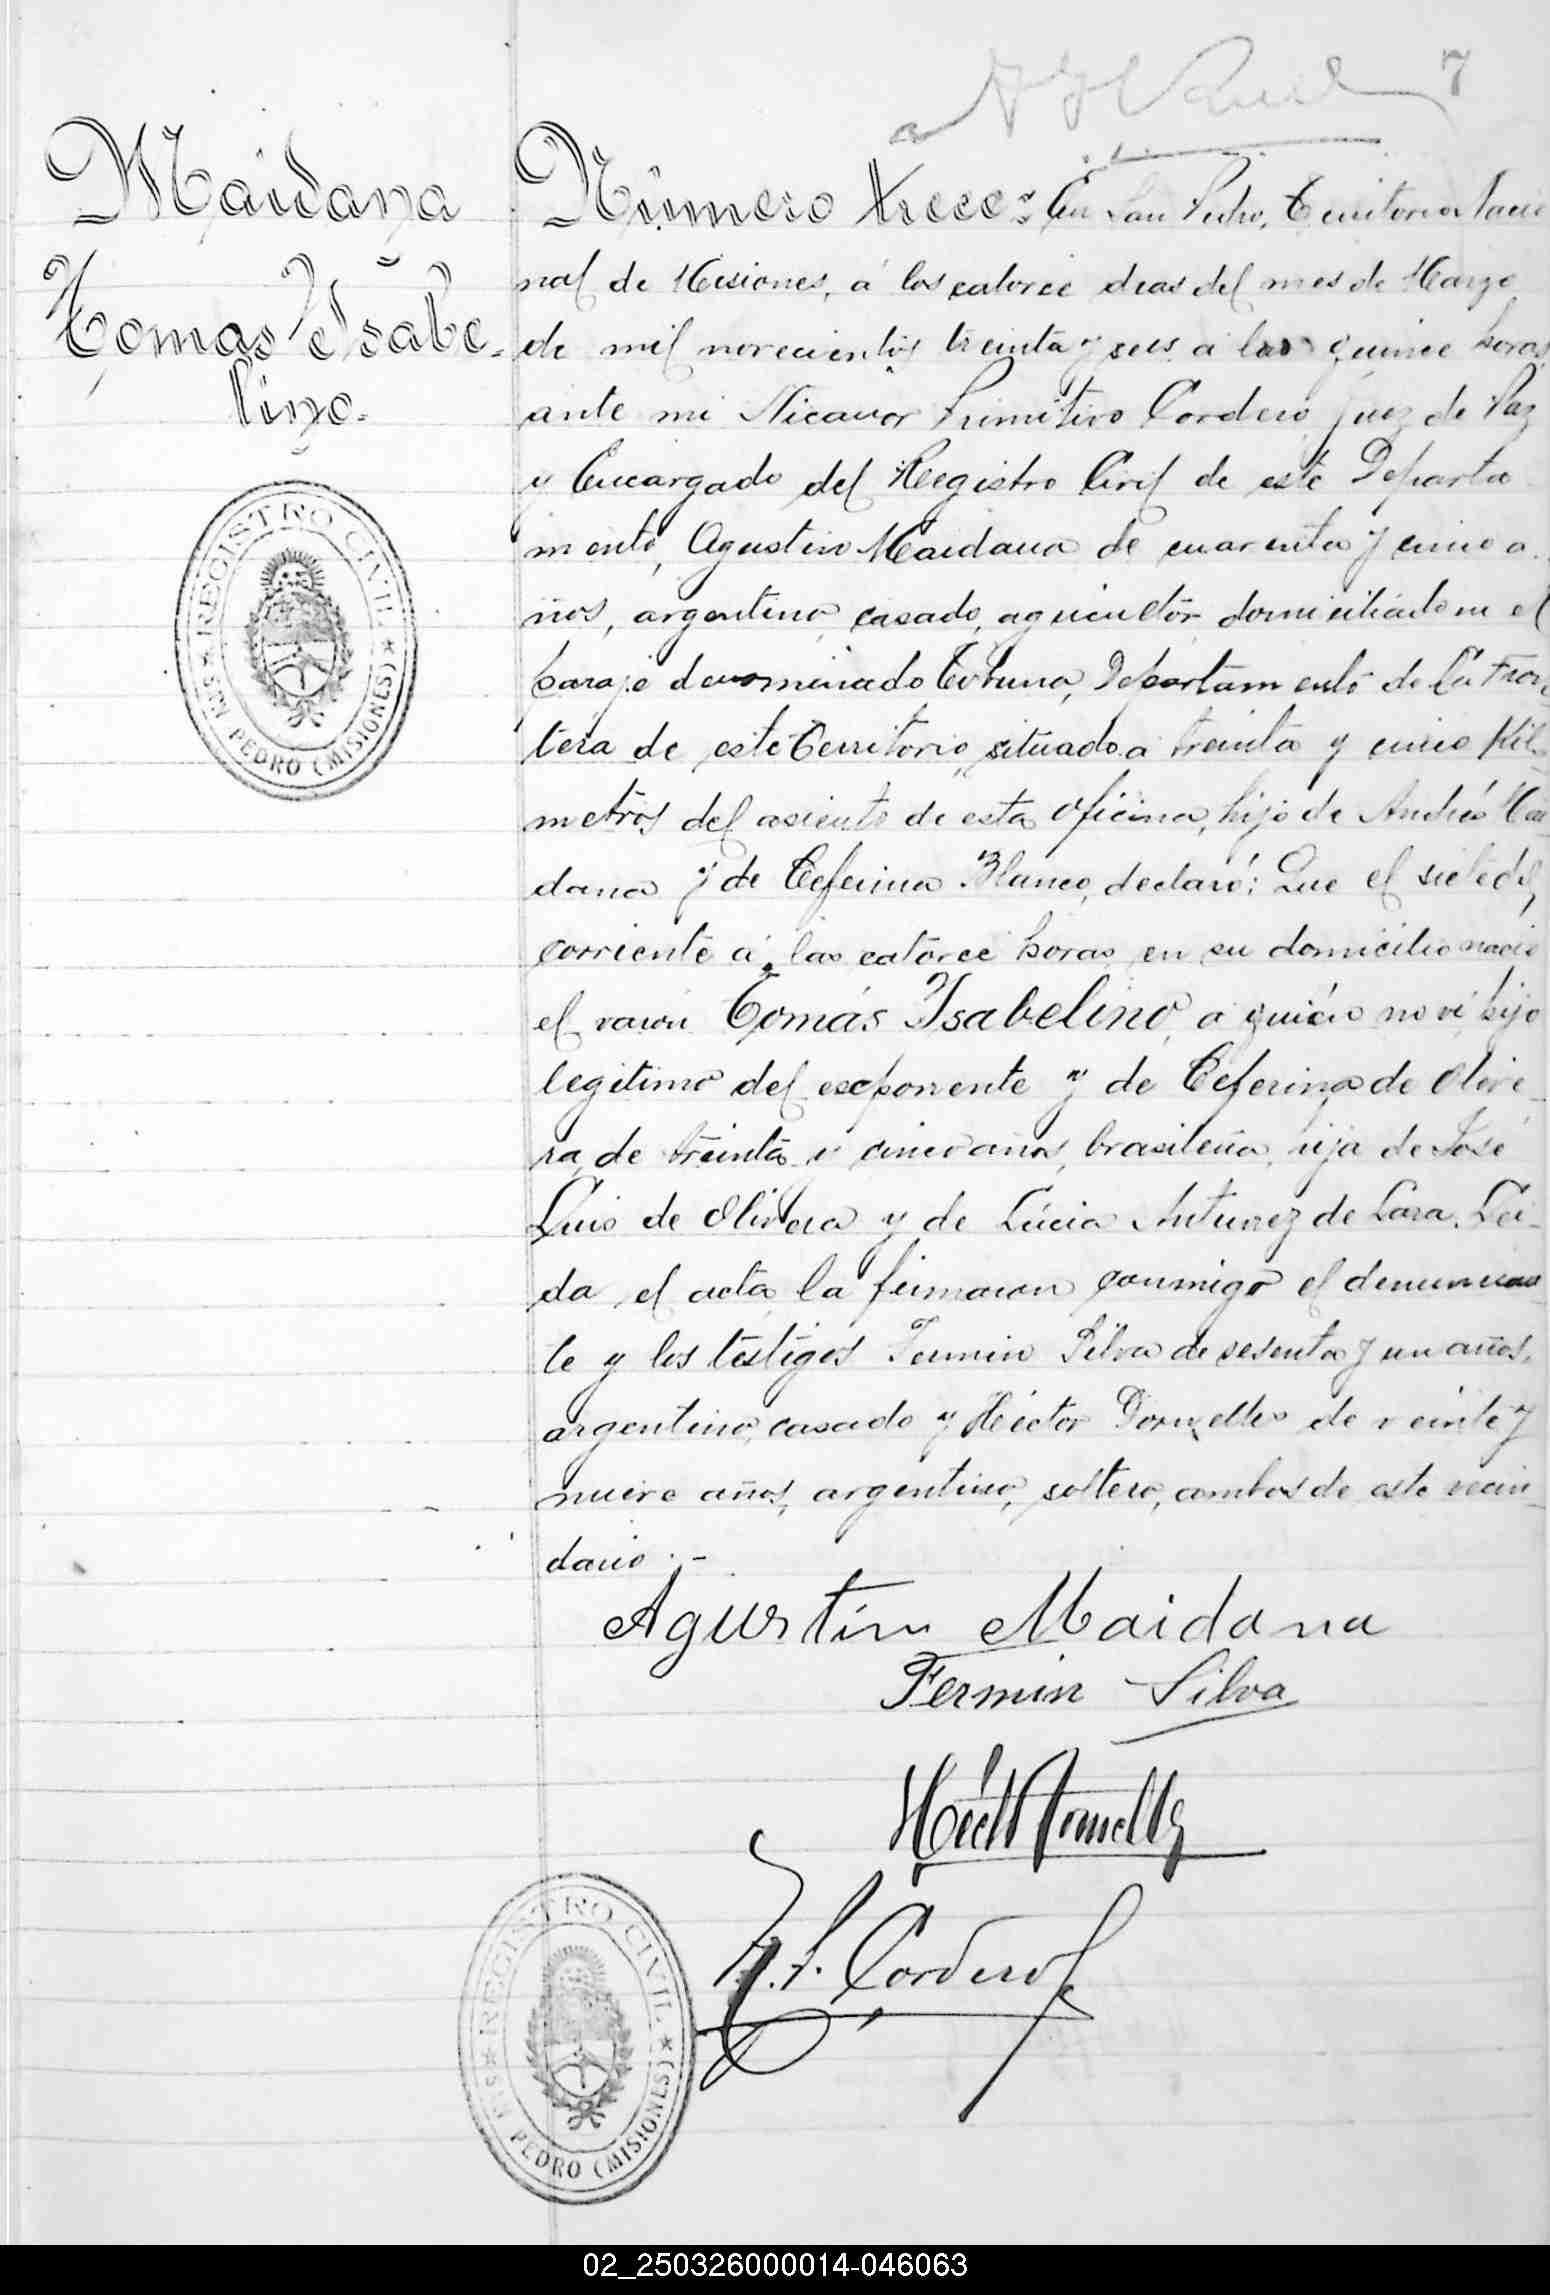 7
Maidana
Tomás Ysabe-
lino.
REGISTRO CIVIL
SAN PEDRO (MISIONES)
Número trece: En San Pedro, Territorio Nacio
nal de Misiones, á los catorce dias del mes de Marzo
de mil novecientos treinta y seis á las quince horas,
ante mi Nicanor Primitivo Cordero, Juez de Paz
y Encargado del Registro Civil de este Departa
mento, Agustin Maidana de cuarenta y cinco a-
ños, argentino, casado, agricultor, domiciliado en el
paraje denominado Departamento de La Fron-
tera de este Territorio, situado á treinta y cinco Kiló-
metros del asiento de esta Oficina, hijo de Andrés Mai
dana y de Ceferina Blanco, declaró: Que el siete del
corriente á las catorce horas en su domicilio nació
el varón Tomás Ysabelino, a quién no ví, hijo
legitimo del exponente y de Ceferina de Olive-
ra, de treinta y cinco años, brasileña, hija de José
Luis de Olivera y de Lúcia Antunez de Lara. Lei-
da el acta, la firmaron conmigo el denuncian
te y los testigos Fermin Silva de sesenta y un años,
argentino, casado y Héctor Dornelles de veinte y
nueve años, argentino, soltero, ambos de este vecin-
dario.-
Agustín Maidana
Fermin Silva
Héctor Dornelles
N. P. Cordero
REGISTRO CIVIL
SAN PEDRO (MISIONES)
02_250326000014-046063